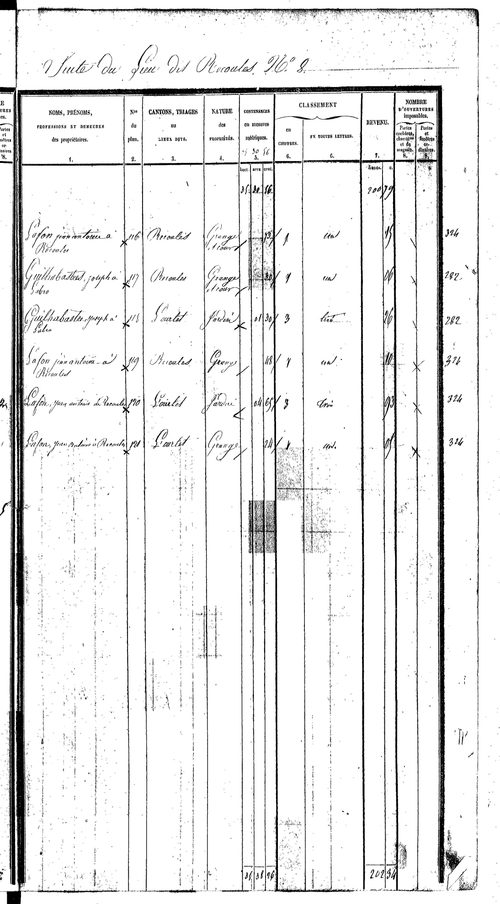 Suite du Lieu des Recoules N.º 8.
NOMS, PRÉNOMS,
PROFESSIONS ET DEMEURES
des propriétaires.
1.
N.os
du
plan.
2.
CANTONS, TRIAGES
ou
LIEUX DITS.
3.
NATURE
des
PROPRIÉTÉS.
4.
CONTENANCES
EN MESURES
métriques.
5.
CLASSEMENT
EN
CHIFFRES.
6.
EN TOUTES LETTRES.
6.
REVENU.
7.
NOMBRE
D'OUVERTURES
imposables.
Portes
cochères,
charretières
et de
magasin.
8.
Portes
et
fenêtres
ordinaires.
9.
Lafon jean antoine à
Recoules
116 Recoules Grange 1 un 15 324
Guilhabastre, joseph à
117 Recoules Grange 1 un 16 282
Guilhabastre, joseph à
118 Pourlet Jardin 01 30 3 trois 26 282
Lafon jean antoine à
Recoules
119 Recoules Grange 1 un 10 324
Lafon, jean antoine à Recoules 120 Pourlet Jardin 04 65 3 trois 93 324
Lafon, jean antoine à Recoules 121 Pourlet Grange 24 1 un 324
202 34